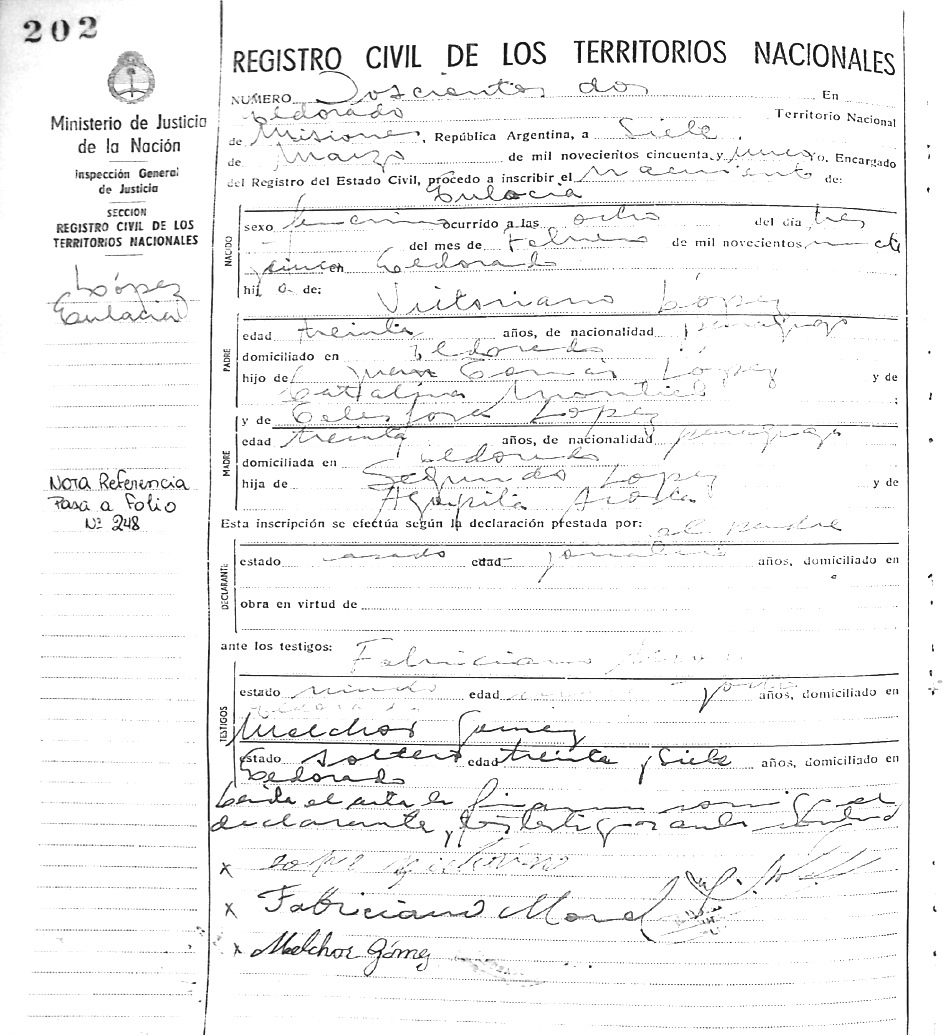 202
Ministerio de Justicia
de la Nación
Inspección General
de Justicia
SECCION
REGISTRO CIVIL DE LOS
TERRITORIOS NACIONALES
López
Eulacia
Nota Referencia
Pasa a Folio
Nº 248
REGISTRO CIVIL DE LOS TERRITORIOS NACIONALES
NUMERO Doscientos dos En
Eldorado Territorio Nacional
de Misiones, República Argentina, a Siete
de Marzo de mil novecientos cincuenta y uno, Encargado
del Registro del Estado Civil, procedo a inscribir el Nacimiento de:
Eulacia
NACIDO
sexo femenino ocurrido a las ocho del día tres
del mes de Febrero de mil novecientos
Eldorado
hijo de:
Victoriano López
PADRE
edad treinta años, de nacionalidad paraguayo
domiciliado en Eldorado
hijo de Juan Tomás López y de
Catalina Montiel
y de Celestora López
MADRE
edad treinta años, de nacionalidad paraguaya
domiciliada en Eldorado
hija de Segundo López y de
Agupita Acosta
Esta inscripción se efectúa según la declaración prestada por: el padre
DECLARANTE
estado casado edad jornalero años, domiciliado en
obra en virtud de
ante los testigos:
Fabriciano
TESTIGOS
estado viudo edad años, domiciliado en
Melchor Gomez
estado soltero edad treinta y siete años, domiciliado en
Eldorado
Leida el acta la firman conmigo el
declarante y los testigos
x
x Fabriciano Morel
x Melchor Gómez